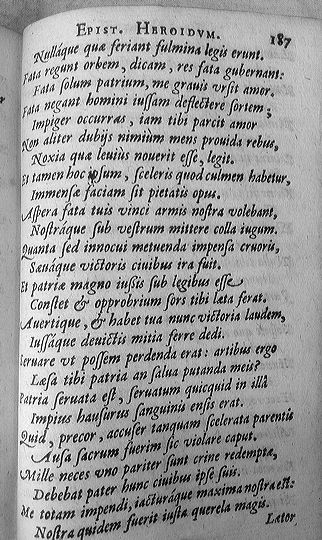 EPIST. HEROIDVM. 187
Nulláque quæ feriant fulmina legis erunt.
Fata regunt orbem, dicam, res fata gubernant:
Fata solum patrium, me grauis vrsit amor.
Fata negant homini iussam deflectere sortem;
Impiger occurras, iam tibi parcit amor
Non aliter dubijs nimiùm mens prouida rebus,
Noxia quæ leuiùs nouerit esse, legit.
Et tamen hoc ipsum, sceleris quod culmen habetur,
Immensæ faciam sit pietatis opus.
Aspera fata tuis vinci armis nostra volebant,
Nostráque sub vestrum mittere colla iugum.
Quanta sed innocui metuenda impensa cruoris,
Sæuáque victoris ciuibus ira fuit.
Et patriæ magno iußis sub legibus esse
Constet & opprobrium sors tibi læta ferat.
Auertique, & habet tua nunc victoria laudem,
Iussáque deuictis mitia ferre dedi.
Seruare vt possem perdenda erat: artibus ergo
Læsa tibi patria an salua putanda meis?
Patria seruata est, seruatum quicquid in illâ
Impius hausurus sanguinis ensis erat.
Quid, precor, accuser tanquam scelerata parentis
Ausa sacrum fuerim sic violare caput.
Mille neces vno pariter sunt crine redemptæ,
Debebat pater hunc ciuibus ipse suis.
Me totam impendi, iacturáque maxima nostra est:
Nostra quidem fuerit iusta querela magis.
Lætor